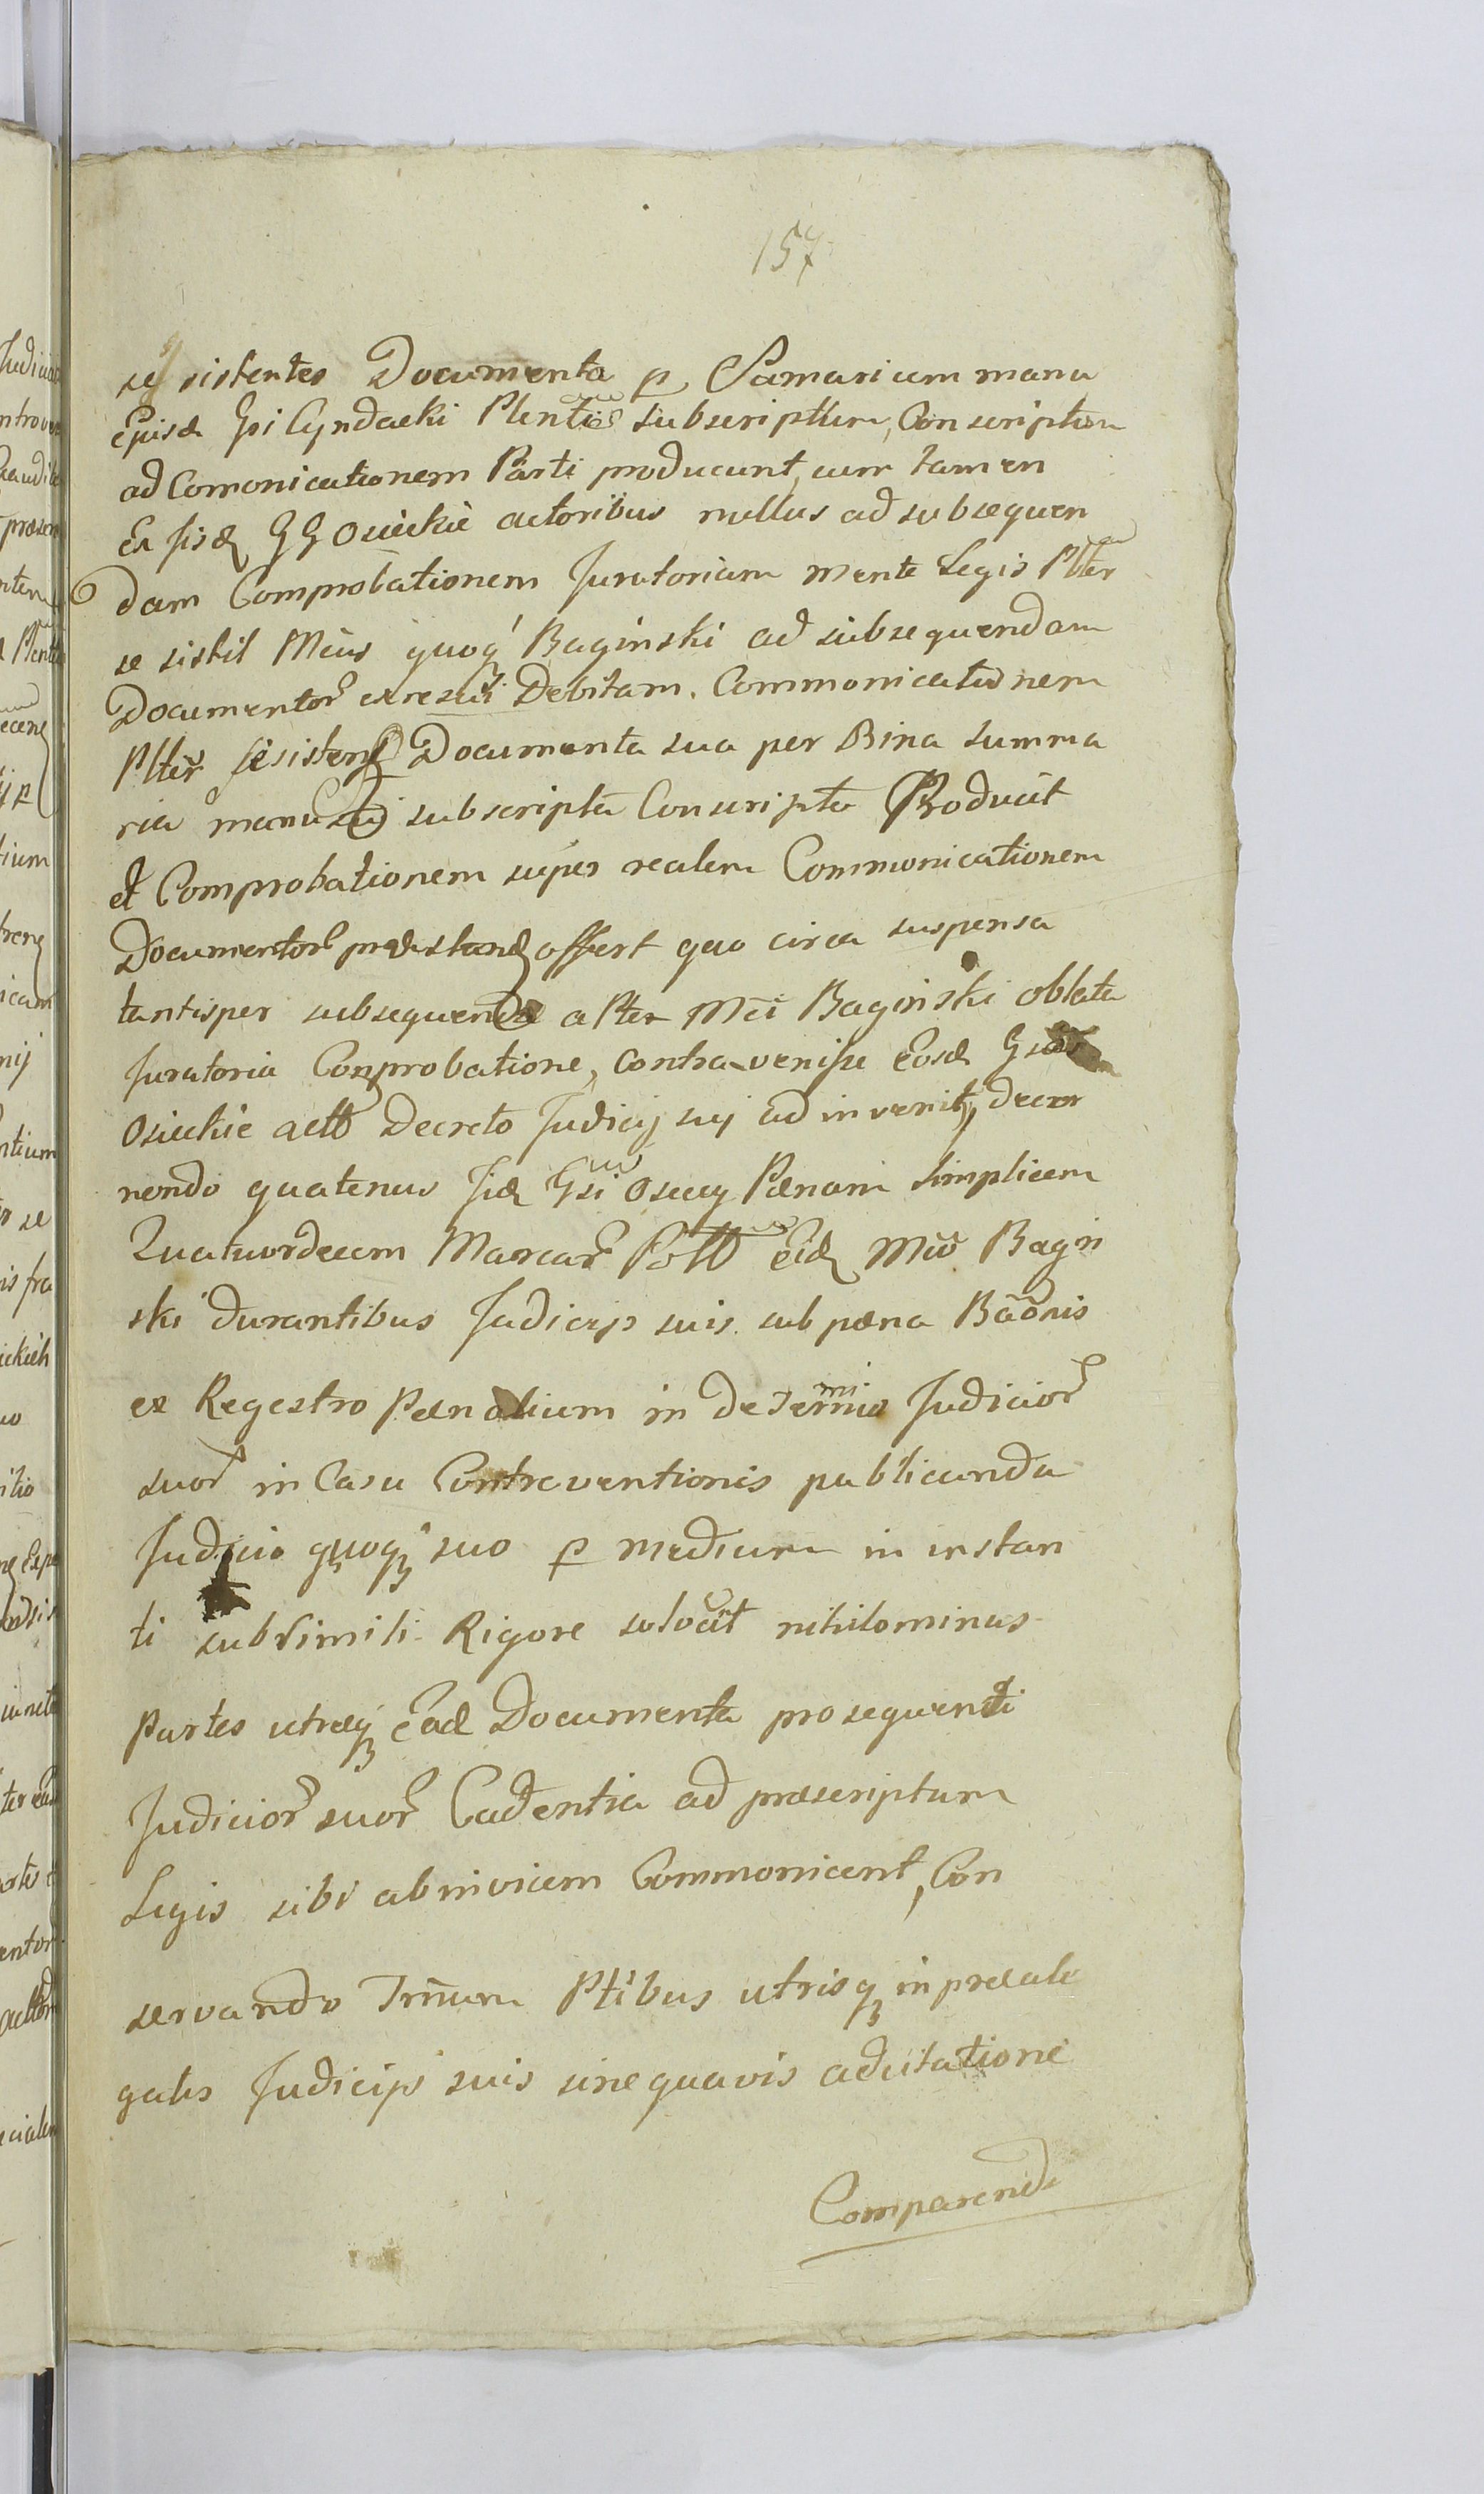 157
se sistentes Documenta p Samarium manu
Ejusd Gsi Cyndacki Plentis subscriptum, Conscriptum
ad Comonicationem Parti producunt, cum tamen
Ex Iisd GG Osieckie actoribus nullus ad subsequen
dam Comprobationem Juratoriam mente Legis Plter
se sistit Mcus quoq Baginski ad subsequendam
Documentor ex re sui Debitam Commonicationem
Plter se sistens Documenta sua per Bina summa
ria manu sui subscripta Conscripta Producit
et Comprobationem super realem Commonicationem
Documentor præstand offert quo circa suspensa
tantisper subsequenda a Pter Mci Baginski oblata
Juratoria Comprobatione, contravenisse Eosd Gsos
Osieckie actt Decreto Judicij sui ad invenit, decer
nendo quatenus Iid Gsi Osiccy Pænam simplicem
Quatuordecem Marcar Poll Eid Mco Bagin
ski durantibus Judicijs suis sub pæna Baonis
ex Regestro Pænalium in determinio Judicior
suor in Casu Contraventionis publicanda
Judicio quoq suo p medium in instan
ti sub simili Rigore solvat nihilominus
Partes utræq Ead Documenta prosequenti
Judicior suor Cadentia ad præscriptum
Legis sibi ab invicem Commonicent, Con
servando Trnum Ptibus utrisq in præale
gatis Judicijs suis sine quavis adcitatione
Comparend